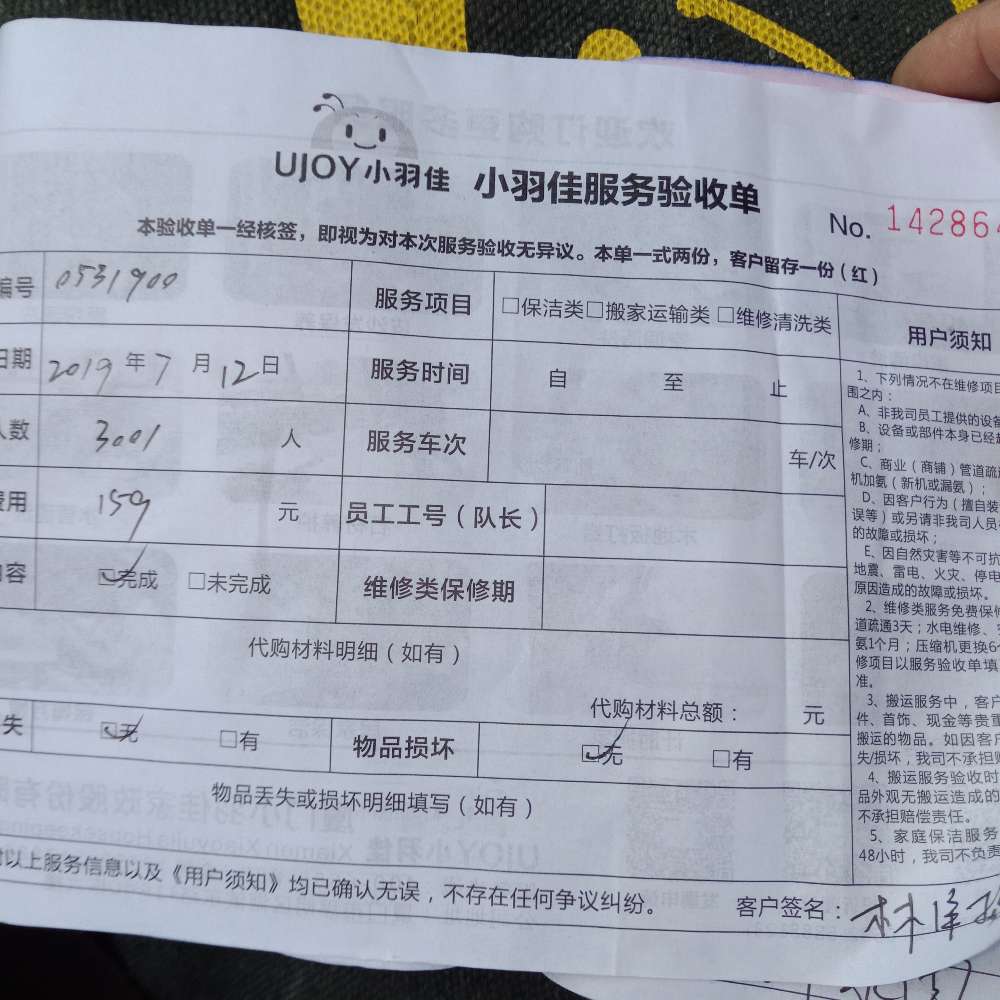 UJOY小羽佳 小羽佳服务验收单
No. 14286
本验收单一经核签，即视为对本次服务验收无异议。本单一式两份，客户留存一份（红）
编号 0531900 服务项目 □保洁类□搬家运输类 □维修清洗类
日期 2019年7月12日 服务时间 自 至 止
人数 3001 人 服务车次 车/次
费用 159 元 员工工号（队长）
内容 ☑完成 □未完成 维修类保修期
代购材料明细（如有）
代购材料总额： 元
失 ☑无 □有 物品损坏 ☑无 □有
物品丢失或损坏明细填写（如有）
以上服务信息以及《用户须知》均已确认无误，不存在任何争议纠纷。 客户签名：林
用户须知
1、下列情况不在维修项目
围之内：
A、非我司员工提供的设备
B、设备或部件本身已经超
修期；
C、商业（商铺）管道疏通
机加氨（新机或漏氨）；
D、因客户行为（擅自装
误等）或另请非我司人员
的故障或损坏；
E、因自然灾害等不可抗
地震、雷电、火灾、停电
原因造成的故障或损坏。
2、维修类服务免费保修
道疏通3天；水电维修、
氨1个月；压缩机更换6
修项目以服务验收单填
准。
3、搬运服务中，客户
件、首饰、现金等贵重
搬运的物品。如因客户
失/损坏，我司不承担
4、搬运服务验收时
品外观无搬运造成的
不承担赔偿责任。
5、家庭保洁服务
48小时，我司不负责